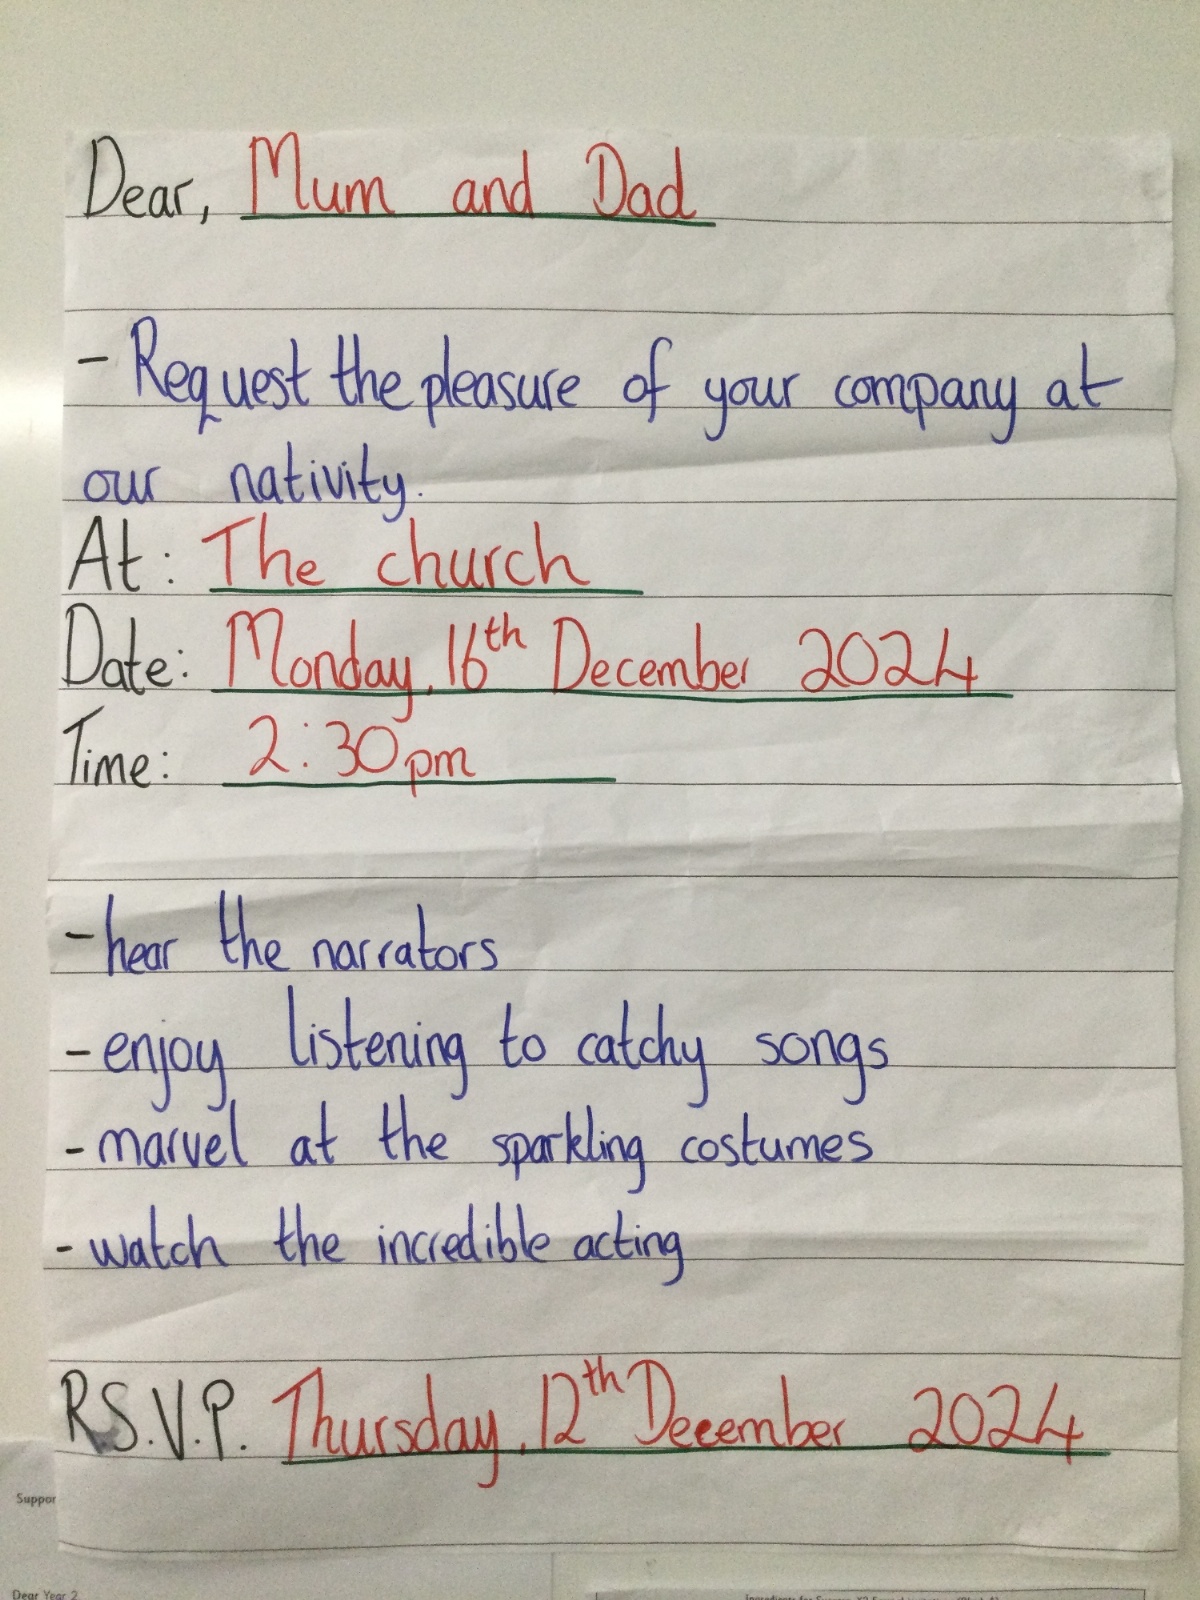 Dear, Mum and Dad
- Request the pleasure of your company at
our nativity.
At: The church
Date: Monday, 16th December 2024
Time: 2:30pm
- hear the narrators
- enjoy listening to catchy songs
- marvel at the sparkling costumes
- watch the incredible acting
R.S.V.P. Thursday, 12th December 2024
Suppor
Dear Year 2